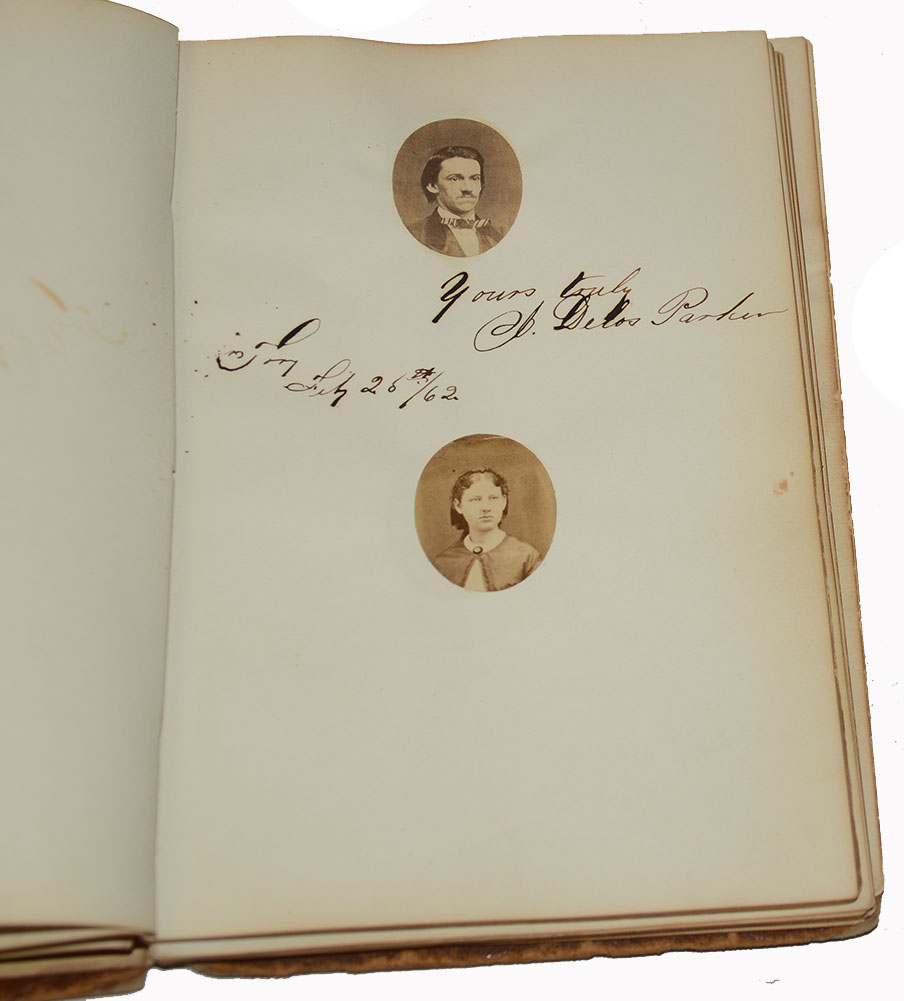 Yours truly
A. Delos Parker
Troy
Feb 26th/62